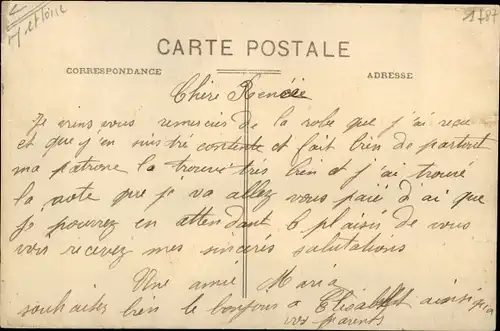 1787
CARTE POSTALE
CORRESPONDANCE
ADRESSE
Chère Renée
Je viens vous remercier de la robe que j'ai reçu
et que j'en suis tré contente et fait bien de partout
ma patrone la trouvé très bien et j'ai trouvé
la note que je va allez vous paié d'ai que
je pourrez en attendant plaisir de vous
voir recevez mes sincères salutations
Une amie Maria
souhaitez bien le bonjour a Elisabet ainsi
vos parents